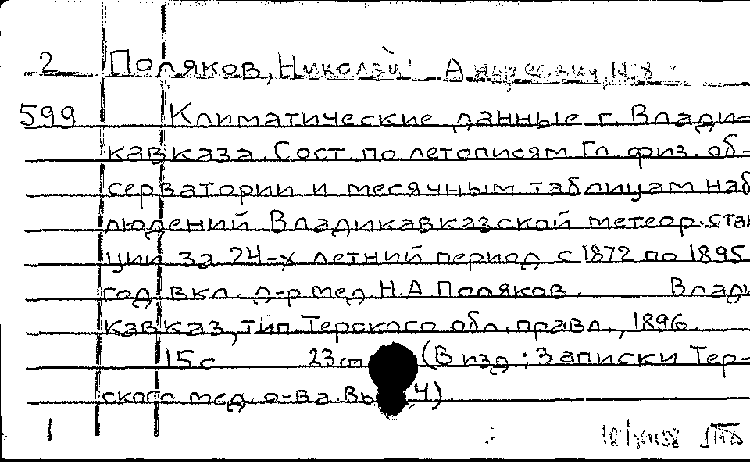 2 Поляков, Николай
599 Климатические данные г. Влади-
кавказа. Сост. по летописям Гл. физ. об-
серватории и месячным таблицам наб
людений Владикавказской метеор. стан
ции за 24-х летний период с 1872 по 1895
год вкл. д-р мед. Н.А Поляков. Влади
кавказ, тип. Терского обл. правл., 1896.
15 с 23 см (В изд: Записки Тер-
ского мед. о-ва. Вы 4)
1